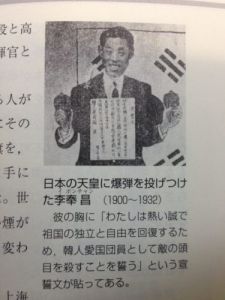 殺と高
軍官と
る人が
にその
旗を，
手に
は。世
の煙が
変わ
上海
日本の天皇に爆弾を投げつけ
イ ポンチャン
た李奉昌 （1900〜1932）
彼の胸に「わたしは熱い誠で
祖国の独立と自由を回復するた
め，韓人愛国団員として敵の頭
目を殺すことを誓う」という宣
誓文が貼ってある。